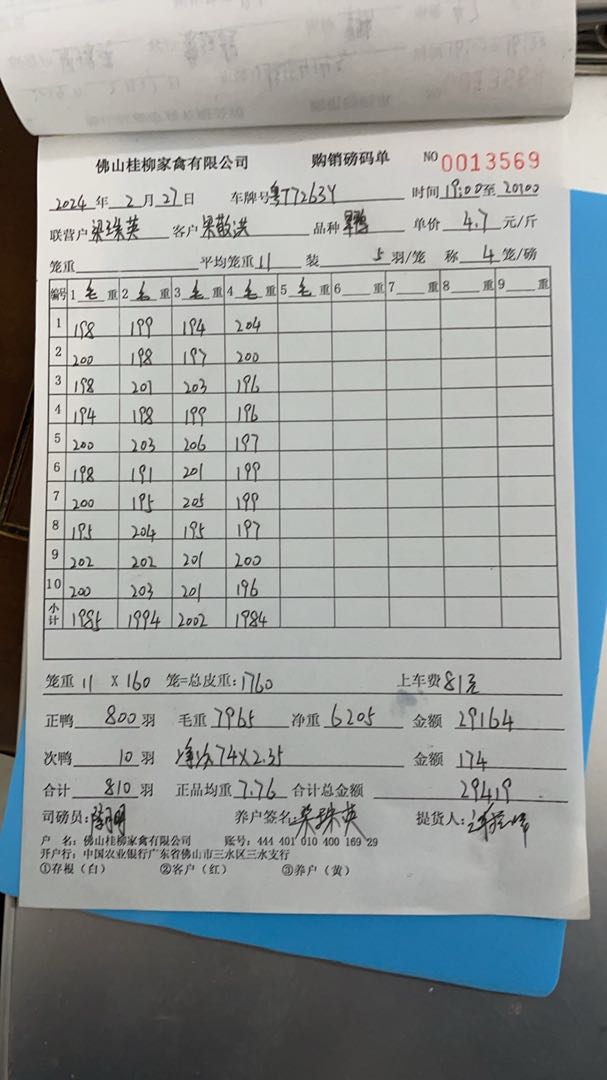 佛山桂柳家禽有限公司 购销磅码单 NO 0013569
2024年2月27日 车牌号粤T7263Y 时间19:00至20:00
联营户 梁珠英 客户 梁敬洪 品种 鸭 单价 4.7 元/斤
笼重 平均笼重 11 装 5 羽/笼 称 4 笼/磅
编号 1毛重 2毛重 3毛重 4毛重 5毛重 6 重 7 重 8 重 9 重
1 198 199 194 204
2 200 198 197 200
3 198 201 203 196
4 194 198 199 196
5 200 203 206 197
6 198 191 201 199
7 200 195 205 199
8 195 204 195 197
9 202 202 201 200
10 200 203 201 196
小计 1985 1994 2002 1984
笼重 11 X 160 笼=总皮重:1760 上车费 81元
正鸭 800 羽 毛重 7965 净重 6205 金额 29164
次鸭 10 羽 净次74X2.35 金额 174
合计 810 羽 正品均重 7.76 合计总金额 29419
司磅员: 养户签名: 梁珠英 提货人:
户 名:佛山桂柳家禽有限公司 账号:444 401 010 400 169 29
开户行:中国农业银行广东省佛山市三水区三水支行
①存根(白) ②客户(红) ③养户(黄)